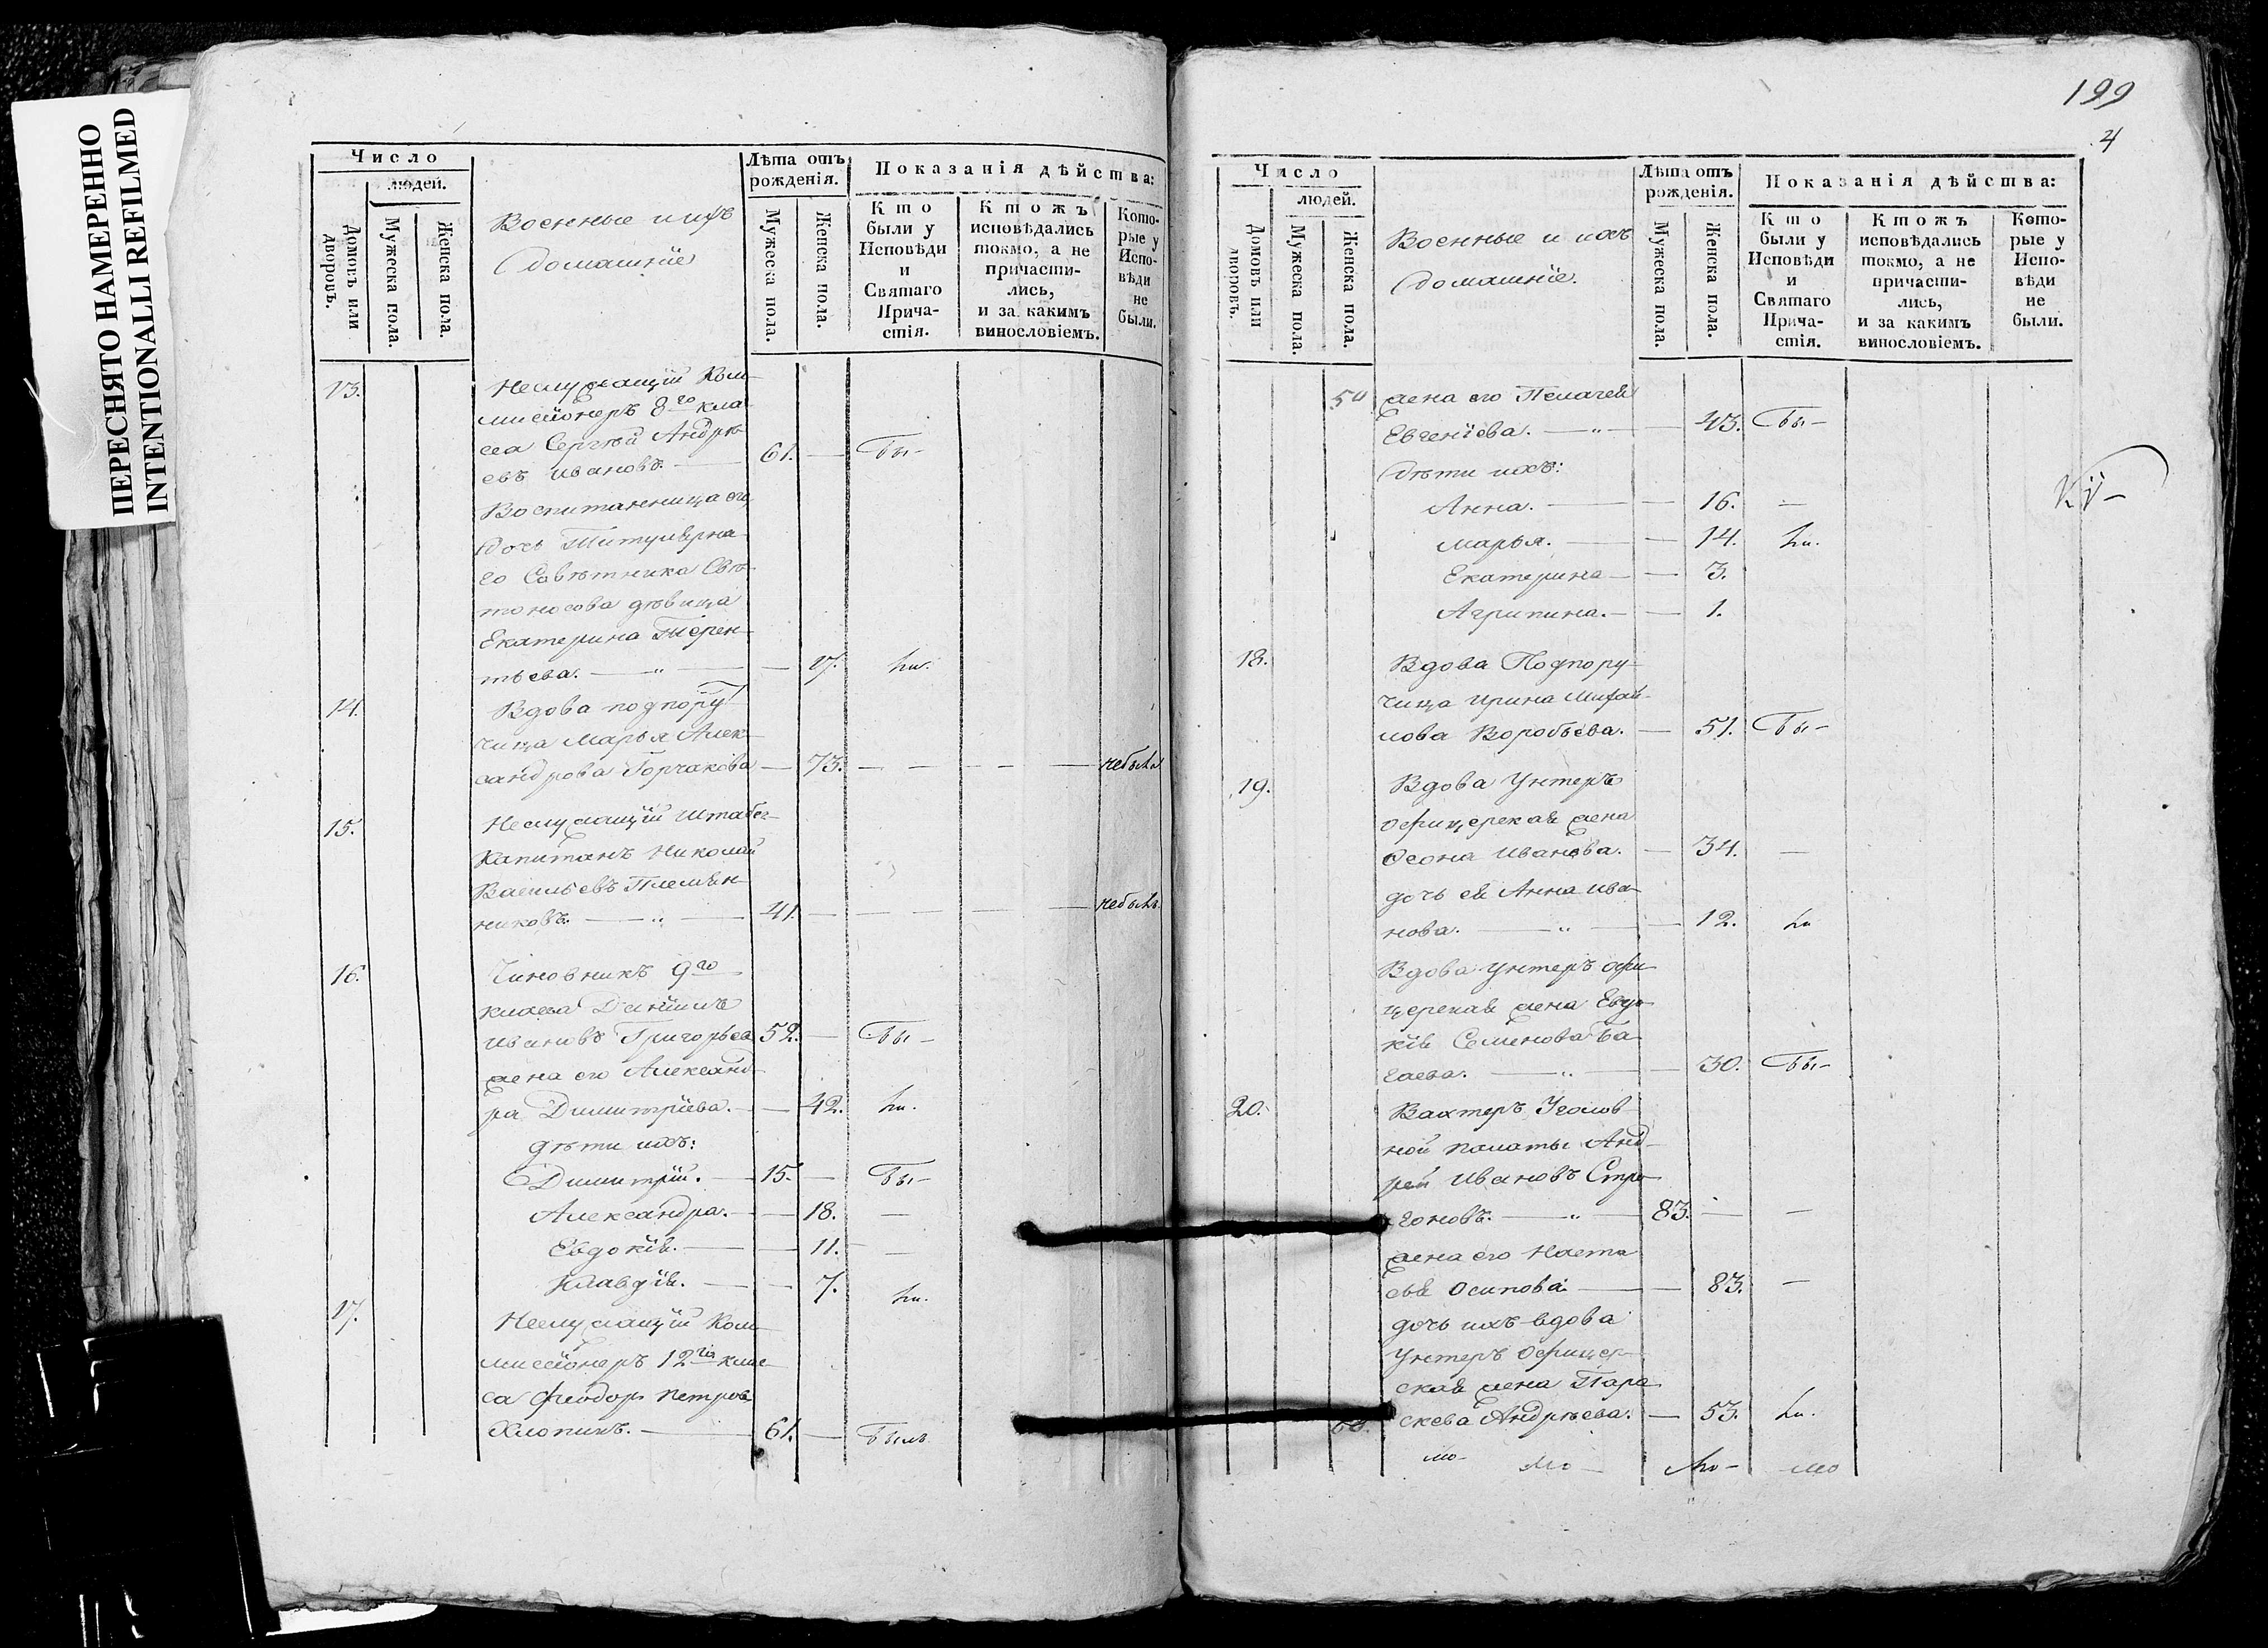 ПЕРЕСНЯТО НАМЕРЕННО
INTENTIONALLI REFILMED
Число
людей.
Домовъ или дворовъ.
Мужеска пола.
Женска пола.
Военные и ихъ
домашніе
Лѣта отъ рожденія.
Мужеска пола.
Женска пола.
Показанія дѣйства:
Кто были у Исповѣди и Святаго Прича-стія.
Ктожъ исповѣдались токмо, а не причасти-лись, и за какимъ винословіемъ.
Кото-рые у Испо-вѣди не были.
13. Неслужащій Ком-
мисіонеръ 8го кла
сса Сергѣй Андрѣ
евъ Ивановъ. — 61. — Бы-
Воспитанница его
дочь Титулярна
го Совѣтника Свѣ-
тоносова дѣвица
Екатерина Терен-
тьева. — „ — — 17.
14. Вдова подпору
чица Марья Алек-
сандрова Горчакова — 73. — — — — небыла
15. Неслужащій Штабсъ-
Капитанъ Николай
Васильевъ Племян-
никовъ. — „ — 41. — — — — небылъ
16. Чиновникъ 9го
класса Даніилъ
Ивановъ Григорьев 52. — Бы-
жена его Александ
ра Димитріева. — — 42.
дѣти ихъ:
Димитрій. — 15. — Бы-
Александра. — — 18. —
Евдокія. — — 11. —
Клавдія. — — 7.
17. Неслужащій Ком-
мисіонеръ 12го клас-
са Феодоръ Петровъ
Хлопинъ. — 61. — Былъ
199
4
Число
людей.
Домовъ или дворовъ.
Мужеска пола.
Женска пола.
Военные и ихъ
домашніе.
Лѣта отъ рожденія.
Мужеска пола.
Женска пола.
Показанія дѣйства:
Кто были у Исповѣди и Святаго Прича-стія.
Ктожъ исповѣдались токмо, а не причасти-лись, и за какимъ винословіемъ.
Кото-рые у Испо-вѣди не были.
жена его Пелагея
Евгеніева. — „ — — 43. Бы-
дѣти ихъ:
Анна. — — 16. —
Марья. — — 14.
Екатерина — — 3.
Агрипина. — — 1.
18. Вдова Подпору-
чица Ирина Михай-
лова Воробьева. — 51. Бы-
19. Вдова Унтеръ
офицерская жена
Ѳеона Иванова. — 34. —
дочь ея Анна Ива-
нова. — „ — — 12.
Вдова унтеръ офи
церская жена Евдо
кія Семенова Ба
гаева. — „ — — 30. Бы-
20. Вахтеръ Уголов-
ной палаты Анд-
рей Ивановъ Стро
гоновъ. — „ — 83. — —
жена его Наста
сья Осипова — — 83. —
дочь ихъ вдова
Унтеръ Офицер-
ская жена Пара
скева Андрѣева. — 53.